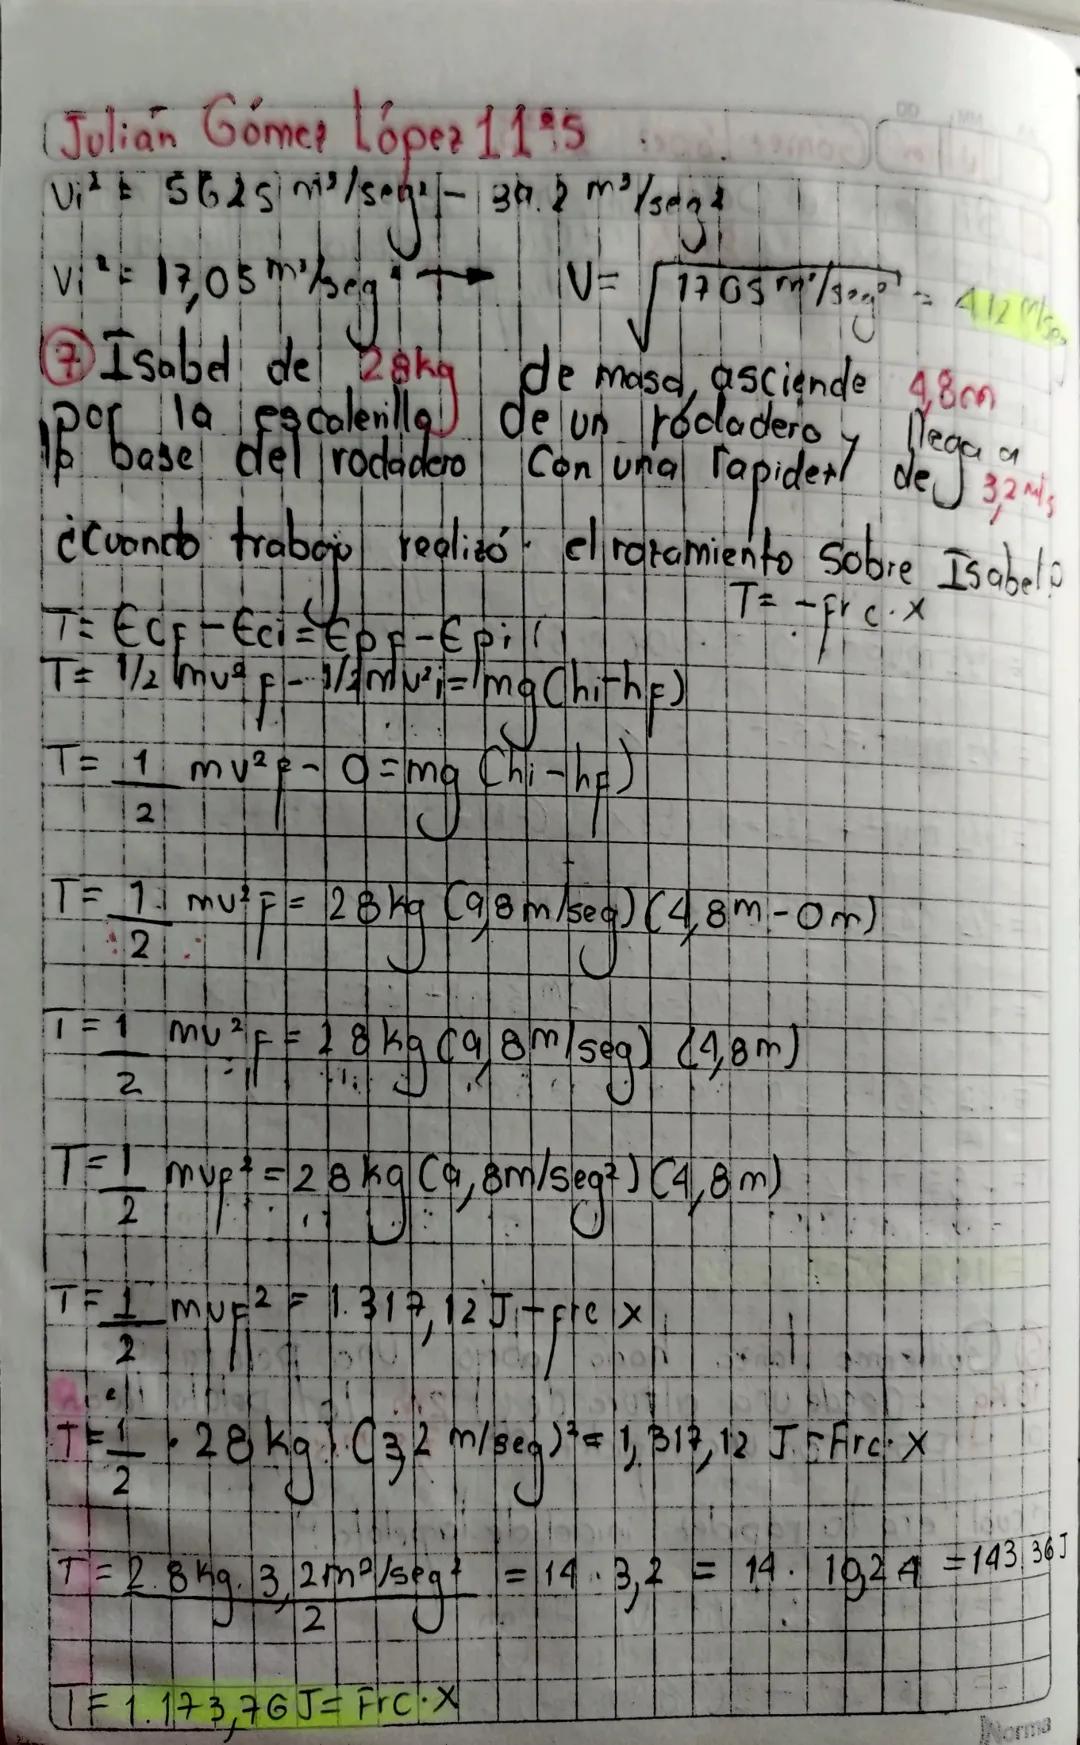 Julián Gómez López 11°5
Vi² = 5625 m²/seg² - 39.2 m²/seg²
Vi² = 17,05 m²/seg² → V= √1705 m²/seg² = 412 M/se
7 Isabel de 28kg de masa, asciende 4,8m
por la escalerilla de un rodadero y llega a
la base del rodadero con una rapidez de 3,2 m/s
¿Cuando trabajo realizó el rozamiento sobre Isabel?
T = -frc·x
T= ECF-Eci=EpF-Epi
T= 1/2 mv²F - 1/2 mv²i = mg(hi-hF)
T= 1/2 mv²F - 0=mg (hi-hF)
T= 1/2 mv²F = 28kg (9,8m/seg) (4,8m-0m)
T=1/2 mv²F = 28kg (9,8m/seg) (4,8m)
T=1/2 mvF² = 28kg (9,8m/seg²) (4,8m)
T=1/2 mvF² = 1.317,12 J - frc x
T=1/2 · 28kg · (3,2 m/seg)² = 1,317,12 J - Frc·X
T= 28kg · 3,2m²/seg² / 2 = 14 · 3,2 = 14 · 10,24 = 143,36 J
T= 1.173,76 J = Frc·X
Norma